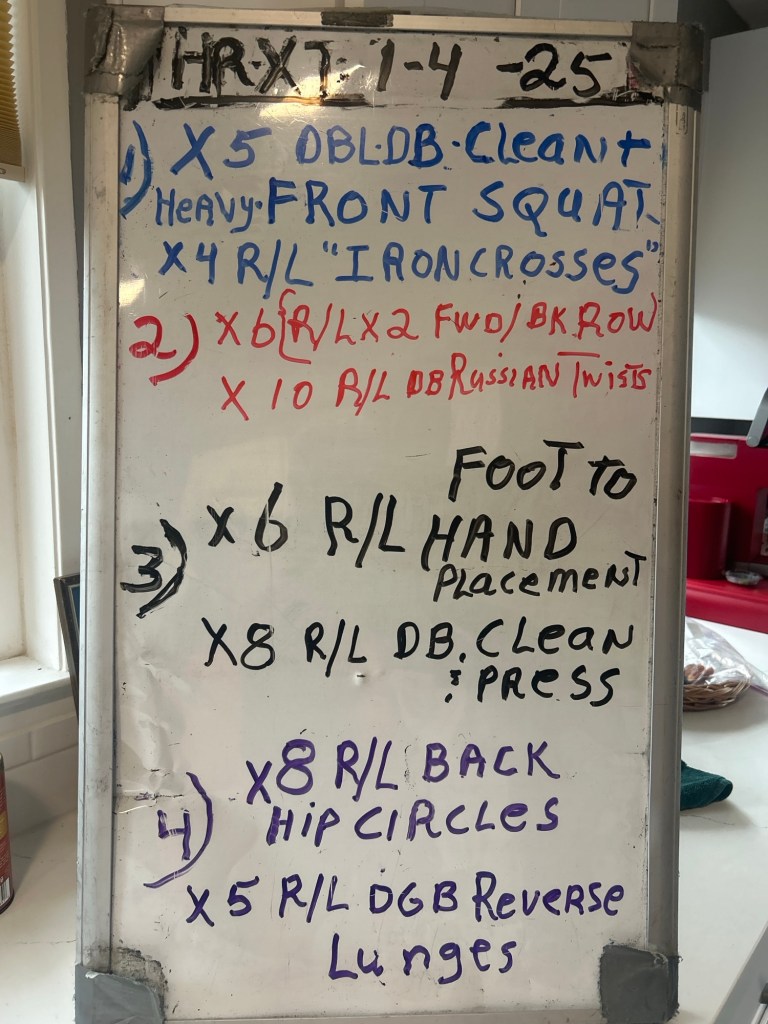 HR-XT 1-4-25
1) X5 DBL.DB.Clean+
Heavy.FRONT SQUAT
X4 R/L "IRONCROSSES"
2) X6{R/LX2 FWD/BK ROW
X 10 R/L DB Russian Twists
FOOT TO
3) X6 R/L HAND
Placement
X8 R/L DB. Clean
& PRESS
4) X8 R/L BACK
HIP CIRCLES
X5 R/L DGB Reverse
Lunges